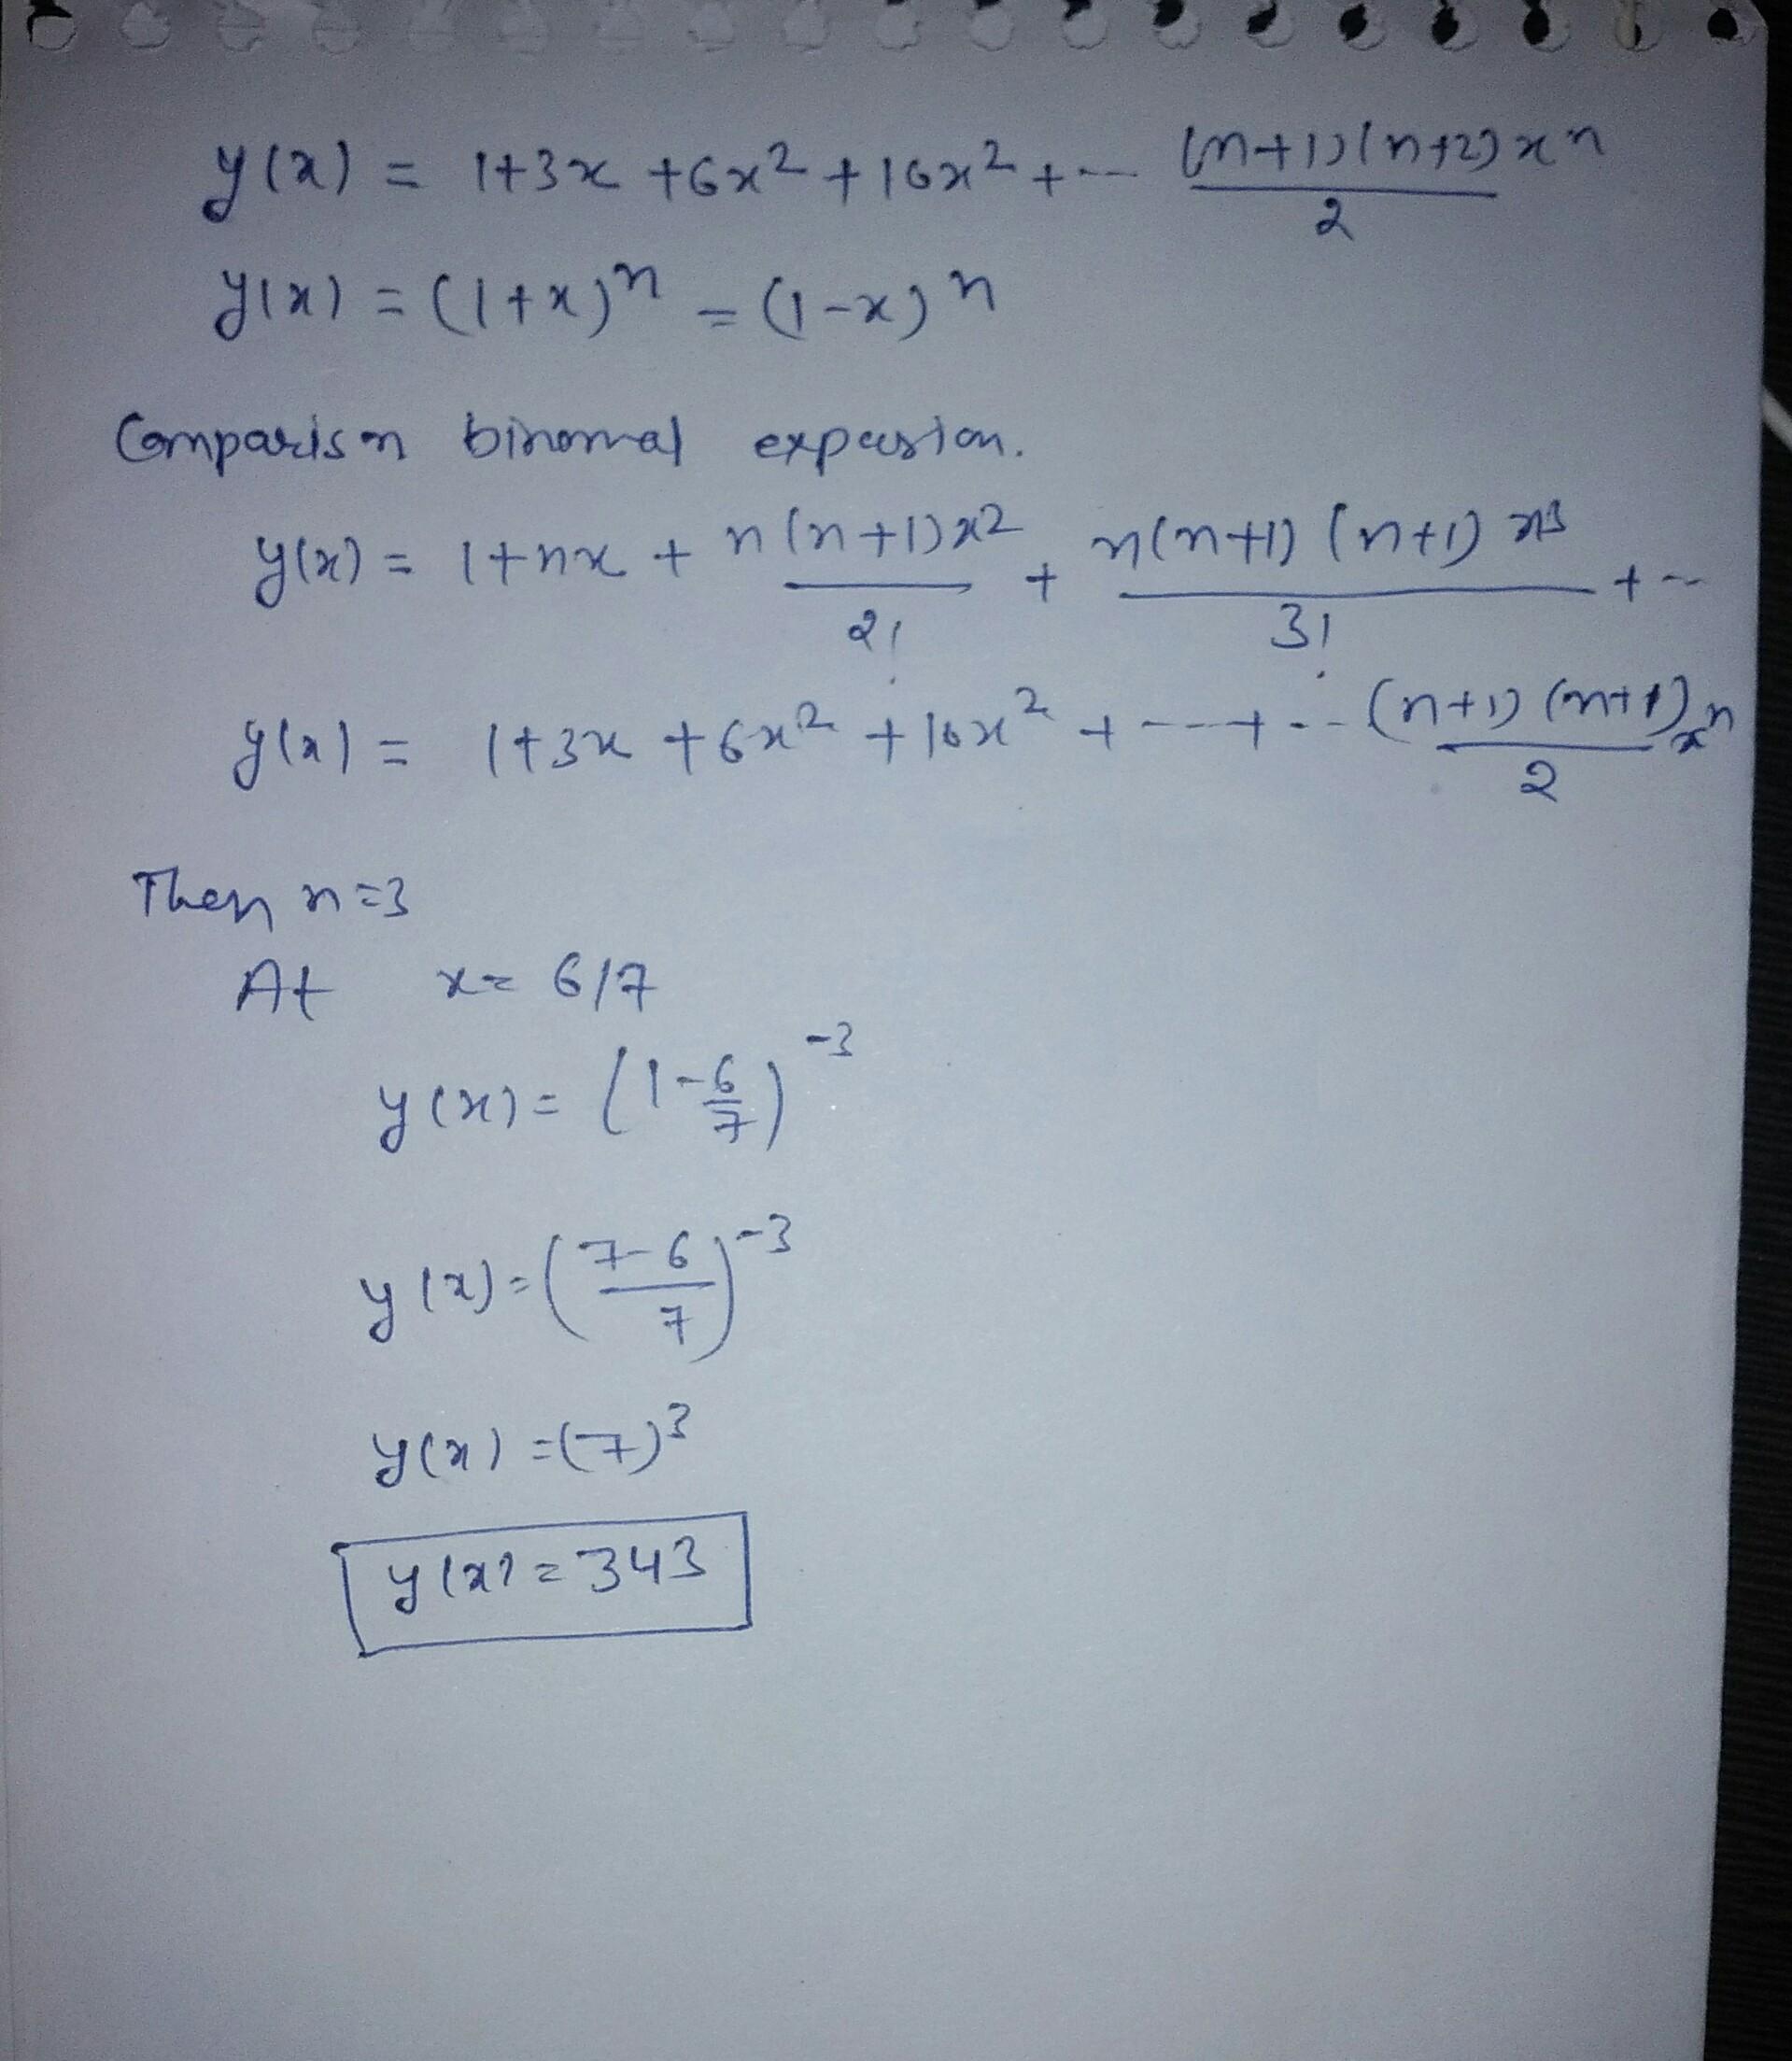 y(x) = 1+3x +6x² + 10x² + -- (n+1)(n+2) xⁿ / 2
y(x) = (1+x)ⁿ = (1-x)ⁿ
Comparison binomal expasion.
y(x) = 1+nx + n(n+1)x² / 2! + n(n+1) (n+1) x³ / 3! + --
y(x) = 1+3x +6x² +10x² + ---+ -- (n+1) (n+1) xⁿ / 2
Then n=3
At x= 6/7
y(x) = (1-6/7)⁻³
y(x) = (7-6/7)⁻³
y(x) =(7)³
y(x) = 343